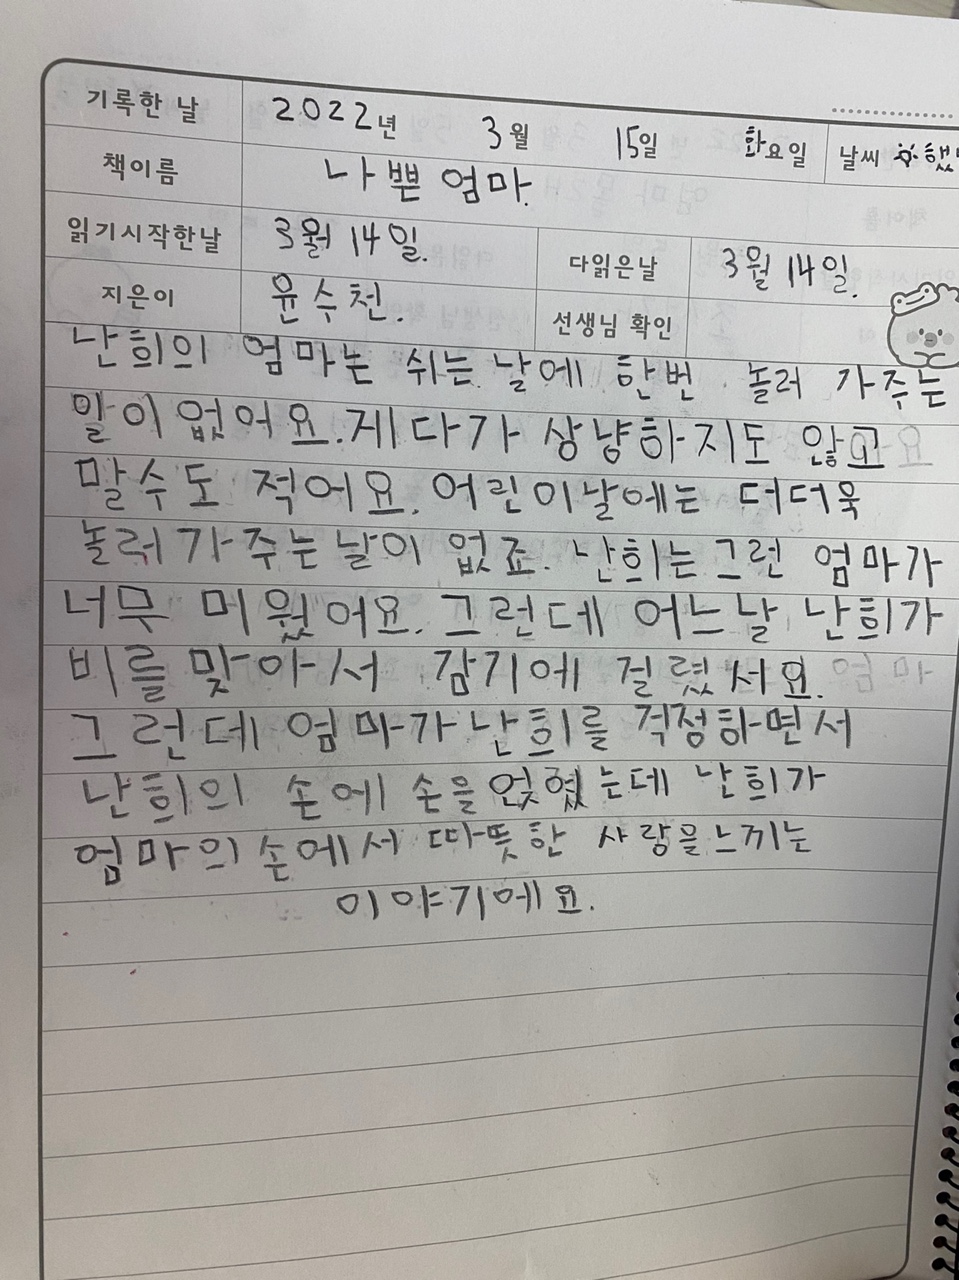 기록한 날 2022년 3월 15일 화요일 날씨
책이름 나쁜 엄마.
읽기시작한날 3월 14일. 다읽은날 3월 14일.
지은이 윤수천. 선생님 확인
난희의 엄마는 쉬는 날에 한번 놀러 가주는
일이 없어요. 게다가 상냥하지도 않고
말수도 적어요. 어린이날에는 더더욱
놀러 가주는 날이 없죠. 난희는 그런 엄마가
너무 미웠어요. 그런데 어느날 난희가
비를 맞아서 감기에 걸렸서요.
그런데 엄마가 난희를 걱정하면서
난희의 손에 손을 얹혔는데 난희가
엄마의 손에서 따뜻한 사랑을 느끼는
이야기에요.